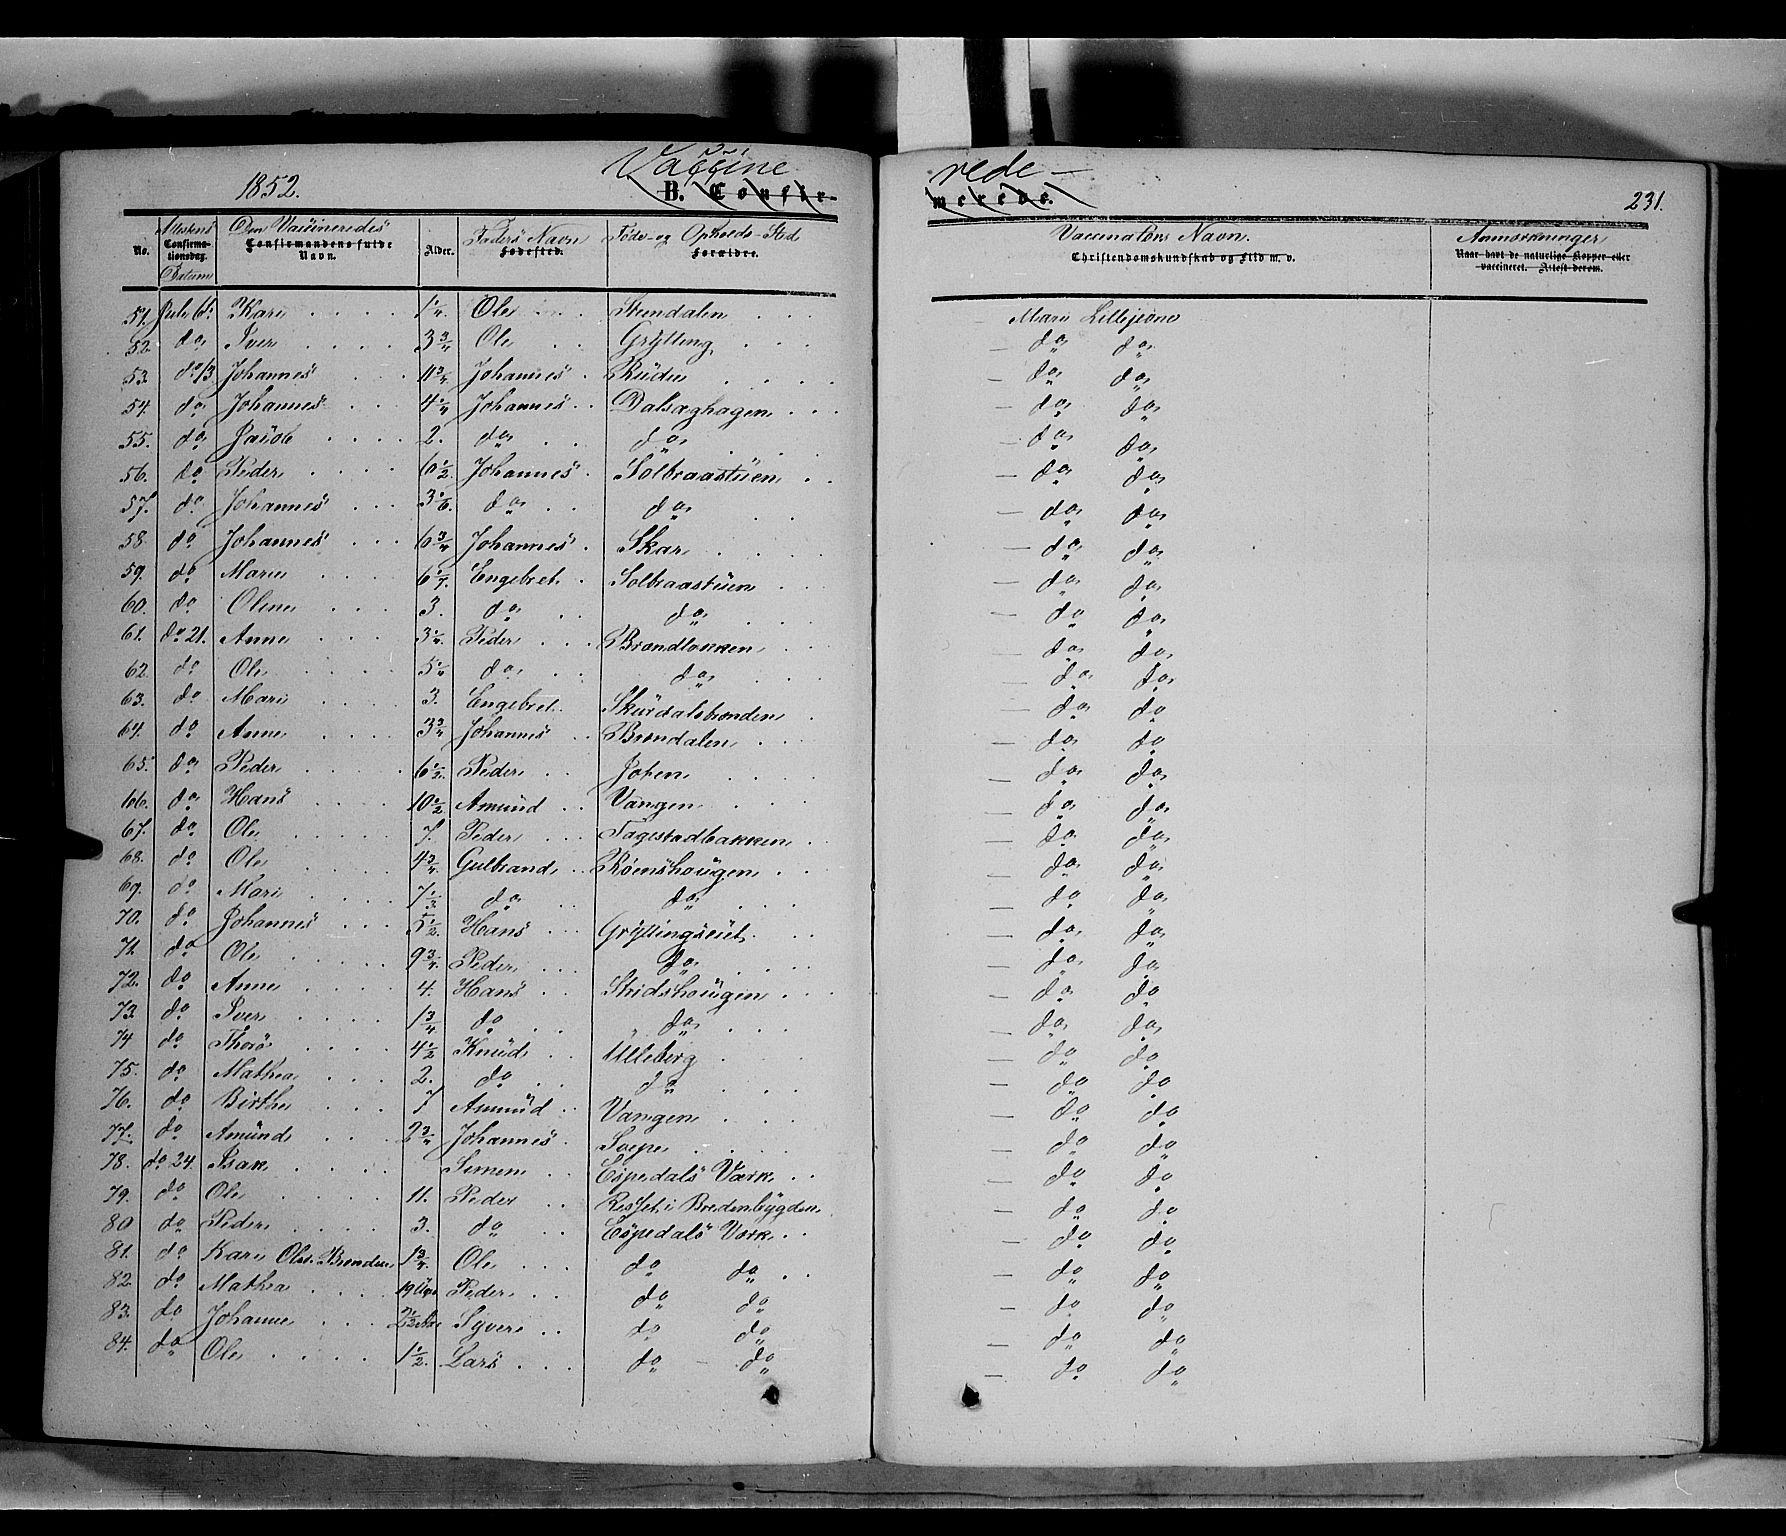 1852. Vaccine rede - 231.
B. Confir- merede.
No. Attestens Confirmationsdag. Datum Den Vaccineredes Confirmandens fulde Navn. Alder. Faders Navn Fødested. Føde- og Opholds-Sted Forældre. Vaccinatørs Navn. Christendomskundskab og Flid m. v. Anmærkninger Naar havt de naturlige Kopper eller vaccineret. Attest derom.
51. Juli 6. Kari 1 1/4 Ole Steendalen — Mari Lillejevne
52. do Iver 3 3/4 Ole Grytting — do do
53. do 13 Johannes 11 3/4 Johannes Ruden — do do
54. do Johannes 4 1/4 Johannes Dalseghagen — do do
55. do Jacob 2. do do — do do
56. do Peder 6 1/2 Johannes Solbraastuen — do do
57. do Johannes 3 1/6 do do do do
58. do Johannes 6 3/4 Johannes Skar — do do
59. do Marie 6 1/4 Engebret Solbraastuen — do do
60. do Oline 3. do do — do do
61. do 21. Anne 3 1/4 Peder Brændløkken — do do
62. do Ole 5 1/4 do do — do do
63. do Mari 3. Engebret Skurdalsbrenden — do do
64. do Anne 3 3/4 Johannes Brendalen — do do
65. do Peder 6 1/2 Peder — do do
66. do Hans 10 1/2 Amund Vangen — do do
67. do Ole 7. Peder Fagestadbakken — do do
68. do Ole 4 3/4 Gulbrand Rømshougen — do do
69. do Mari 7 1/3 do do — do do
70. do Johannes 5 1/2 Hans Gryttingseiet — do do
71. do Ole 9 3/4 Peder do — do do
72. do Anne 4. Hans Skidshougen — do do
73. do Iver 1 3/4 do do — do do
74 do Thorø 4 1/2 Knud Ulleberg — do do
75. do Mathea 2. do do — do do
76. do Birthe 7 Amund Vangen — do do
77. do Amund 2 3/4 Johannes — do do
78. do 24. Isak Simen Espedals Værk — do do
79. do Ole 11. Peder Resset i Bredenbygden — do do
80 do Peder 3. do Espedals Værk — do do
81. do Kari Ols. Brenden 1 3/4 Ole do do — do do
82. do Mathea 19 Uger Peder do do — do do
83. do Johanne Syver do do — do do
84. do Ole 1 1/2 Lars do - do — do do